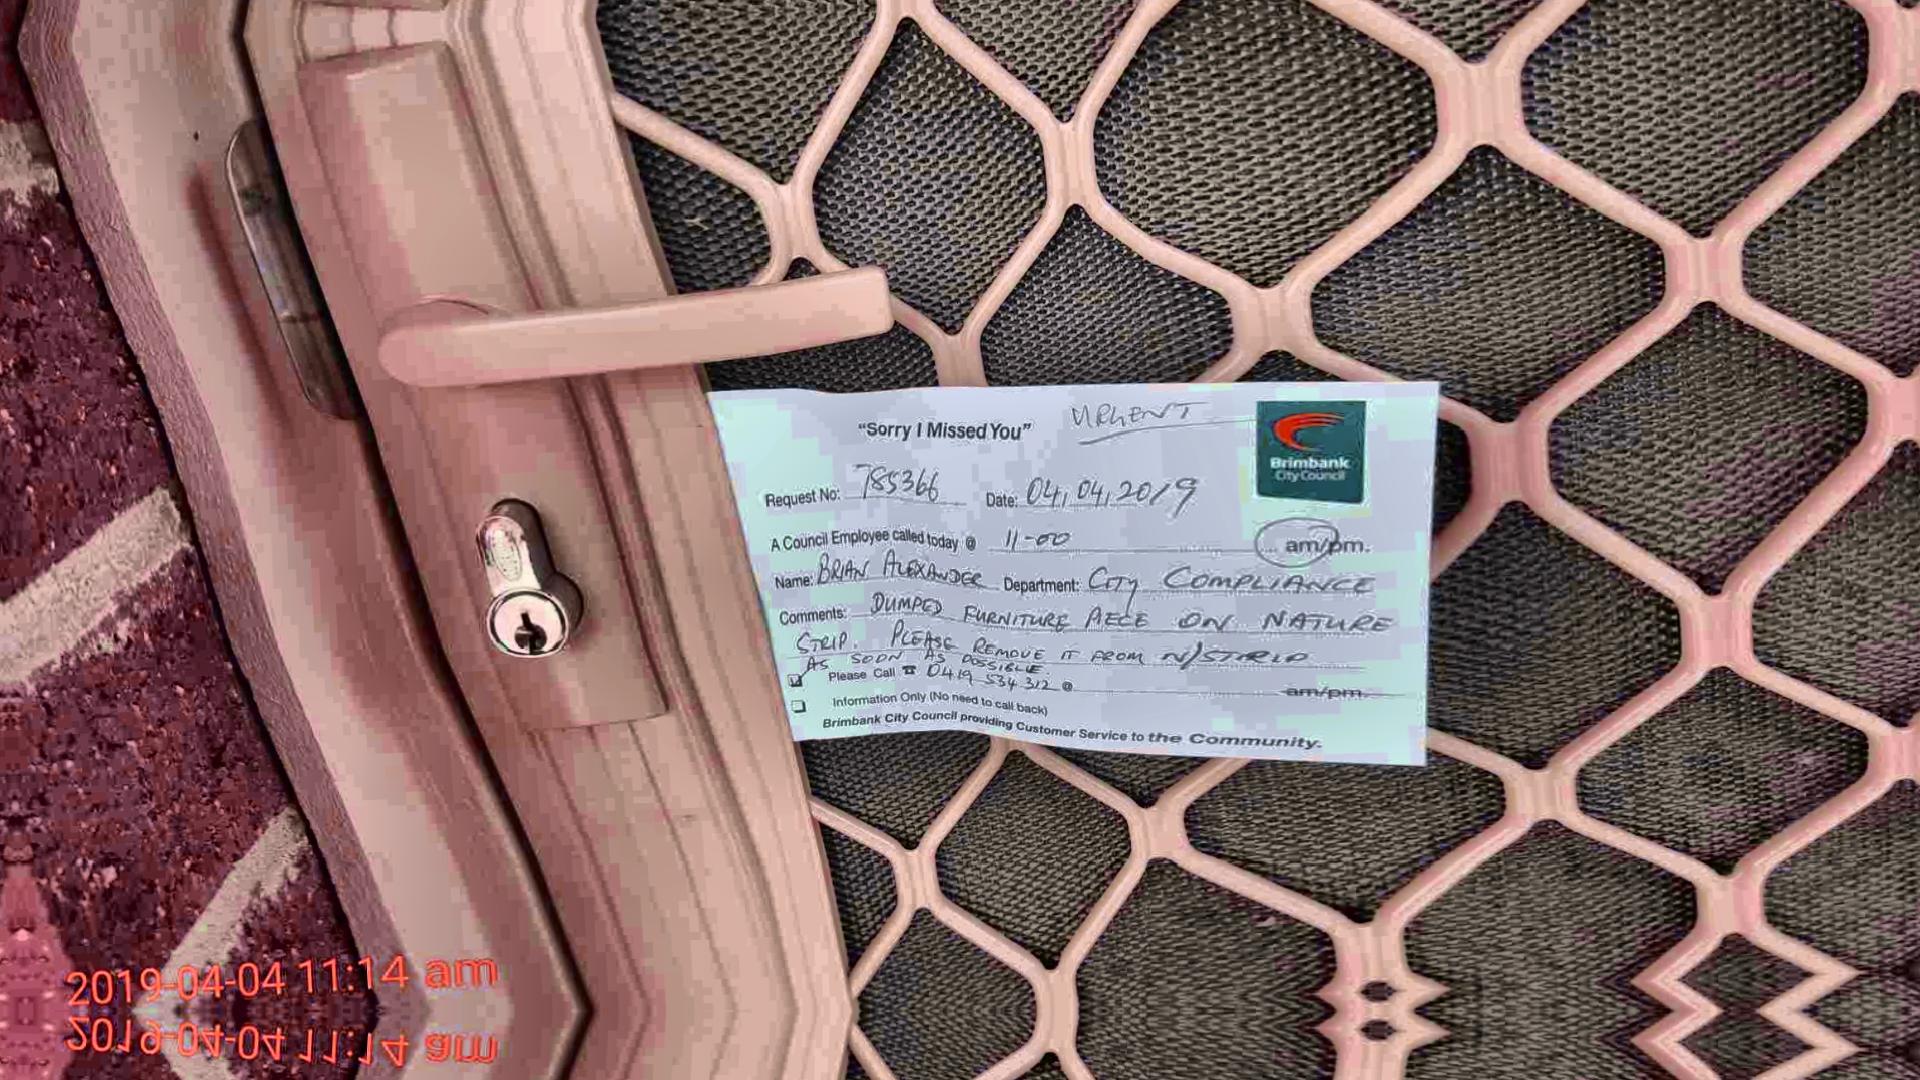 "Sorry I Missed You" URGENT
Brimbank
City Council
Request No: 785366 Date: 04,04,2019
A Council Employee called today @ 11-00 am/pm.
Name: BRIAN ALEXANDER Department: CITY COMPLIANCE
Comments: DUMPED FURNITURE PIECE ON NATURE
STRIP. PLEASE REMOVE IT FROM N/STRIP
AS SOON AS POSSIBLE
Please Call ☎ 0419 534 312 @ am/pm.
Information Only (No need to call back)
Brimbank City Council providing Customer Service to the Community.
2019-04-04 11:14 am
2019-04-04 11:14 am